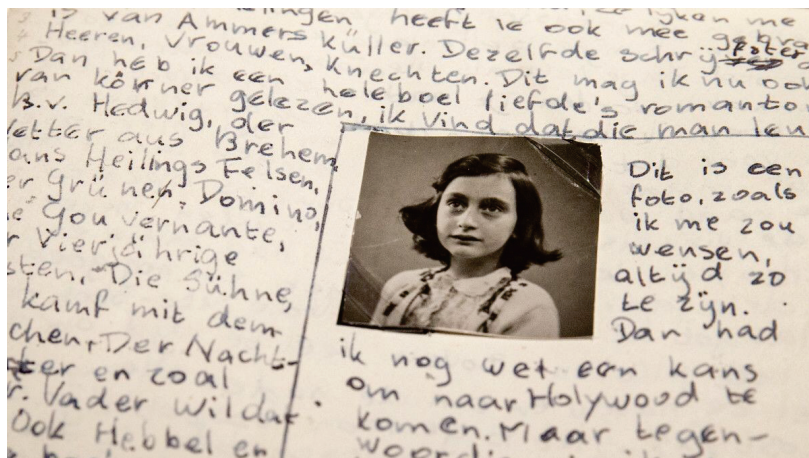 heeft ie ook mee
is van Ammers Küller. Dezelfde
Heeren, Vrouwen, Knechten. Dit mag ik nu ook
Dan heb ik een heleboel liefde's
van körner gelezen, ik vind dat die man
B.v. Hedwig, der
aus Brehem,
Heilings Felsen,
Grünen, Domino,
Gouvernante,
Vierjährige
Die Sühne,
kamf mit dem
Der Nacht-
en zoal
Vader wil dat
Ook Hebbel en
Dit is een
foto, zoals
ik me zou
wensen,
altijd zo
te zijn.
Dan had
ik nog wet een kans
om naar Holywood te
komen. Maar tegen-